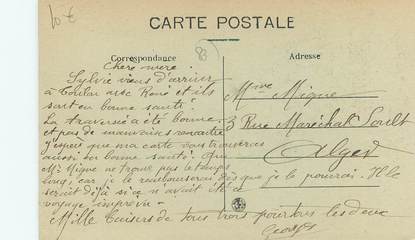 10 €
CARTE POSTALE
83
Correspondance
Adresse
Chère mère.
Sylvie viens d'arriver
à Toulon avec René et ils
sont en bonne santé.
La traversée a été bonne
et pas de mauvaise rencontre
j'espère que ma carte vous trouveras
aussi en bonne santé. Que
Mr Migue ne trouve pas le temps
long, car je le rembourserai dès que je le pourrai. Il le
serait déjà si ce n'avait été ce
voyage imprévu.
Mille baisers de tous trois pour tous les deux
Georges
Mme Migue
3 Rue Maréchal Soult
Alger